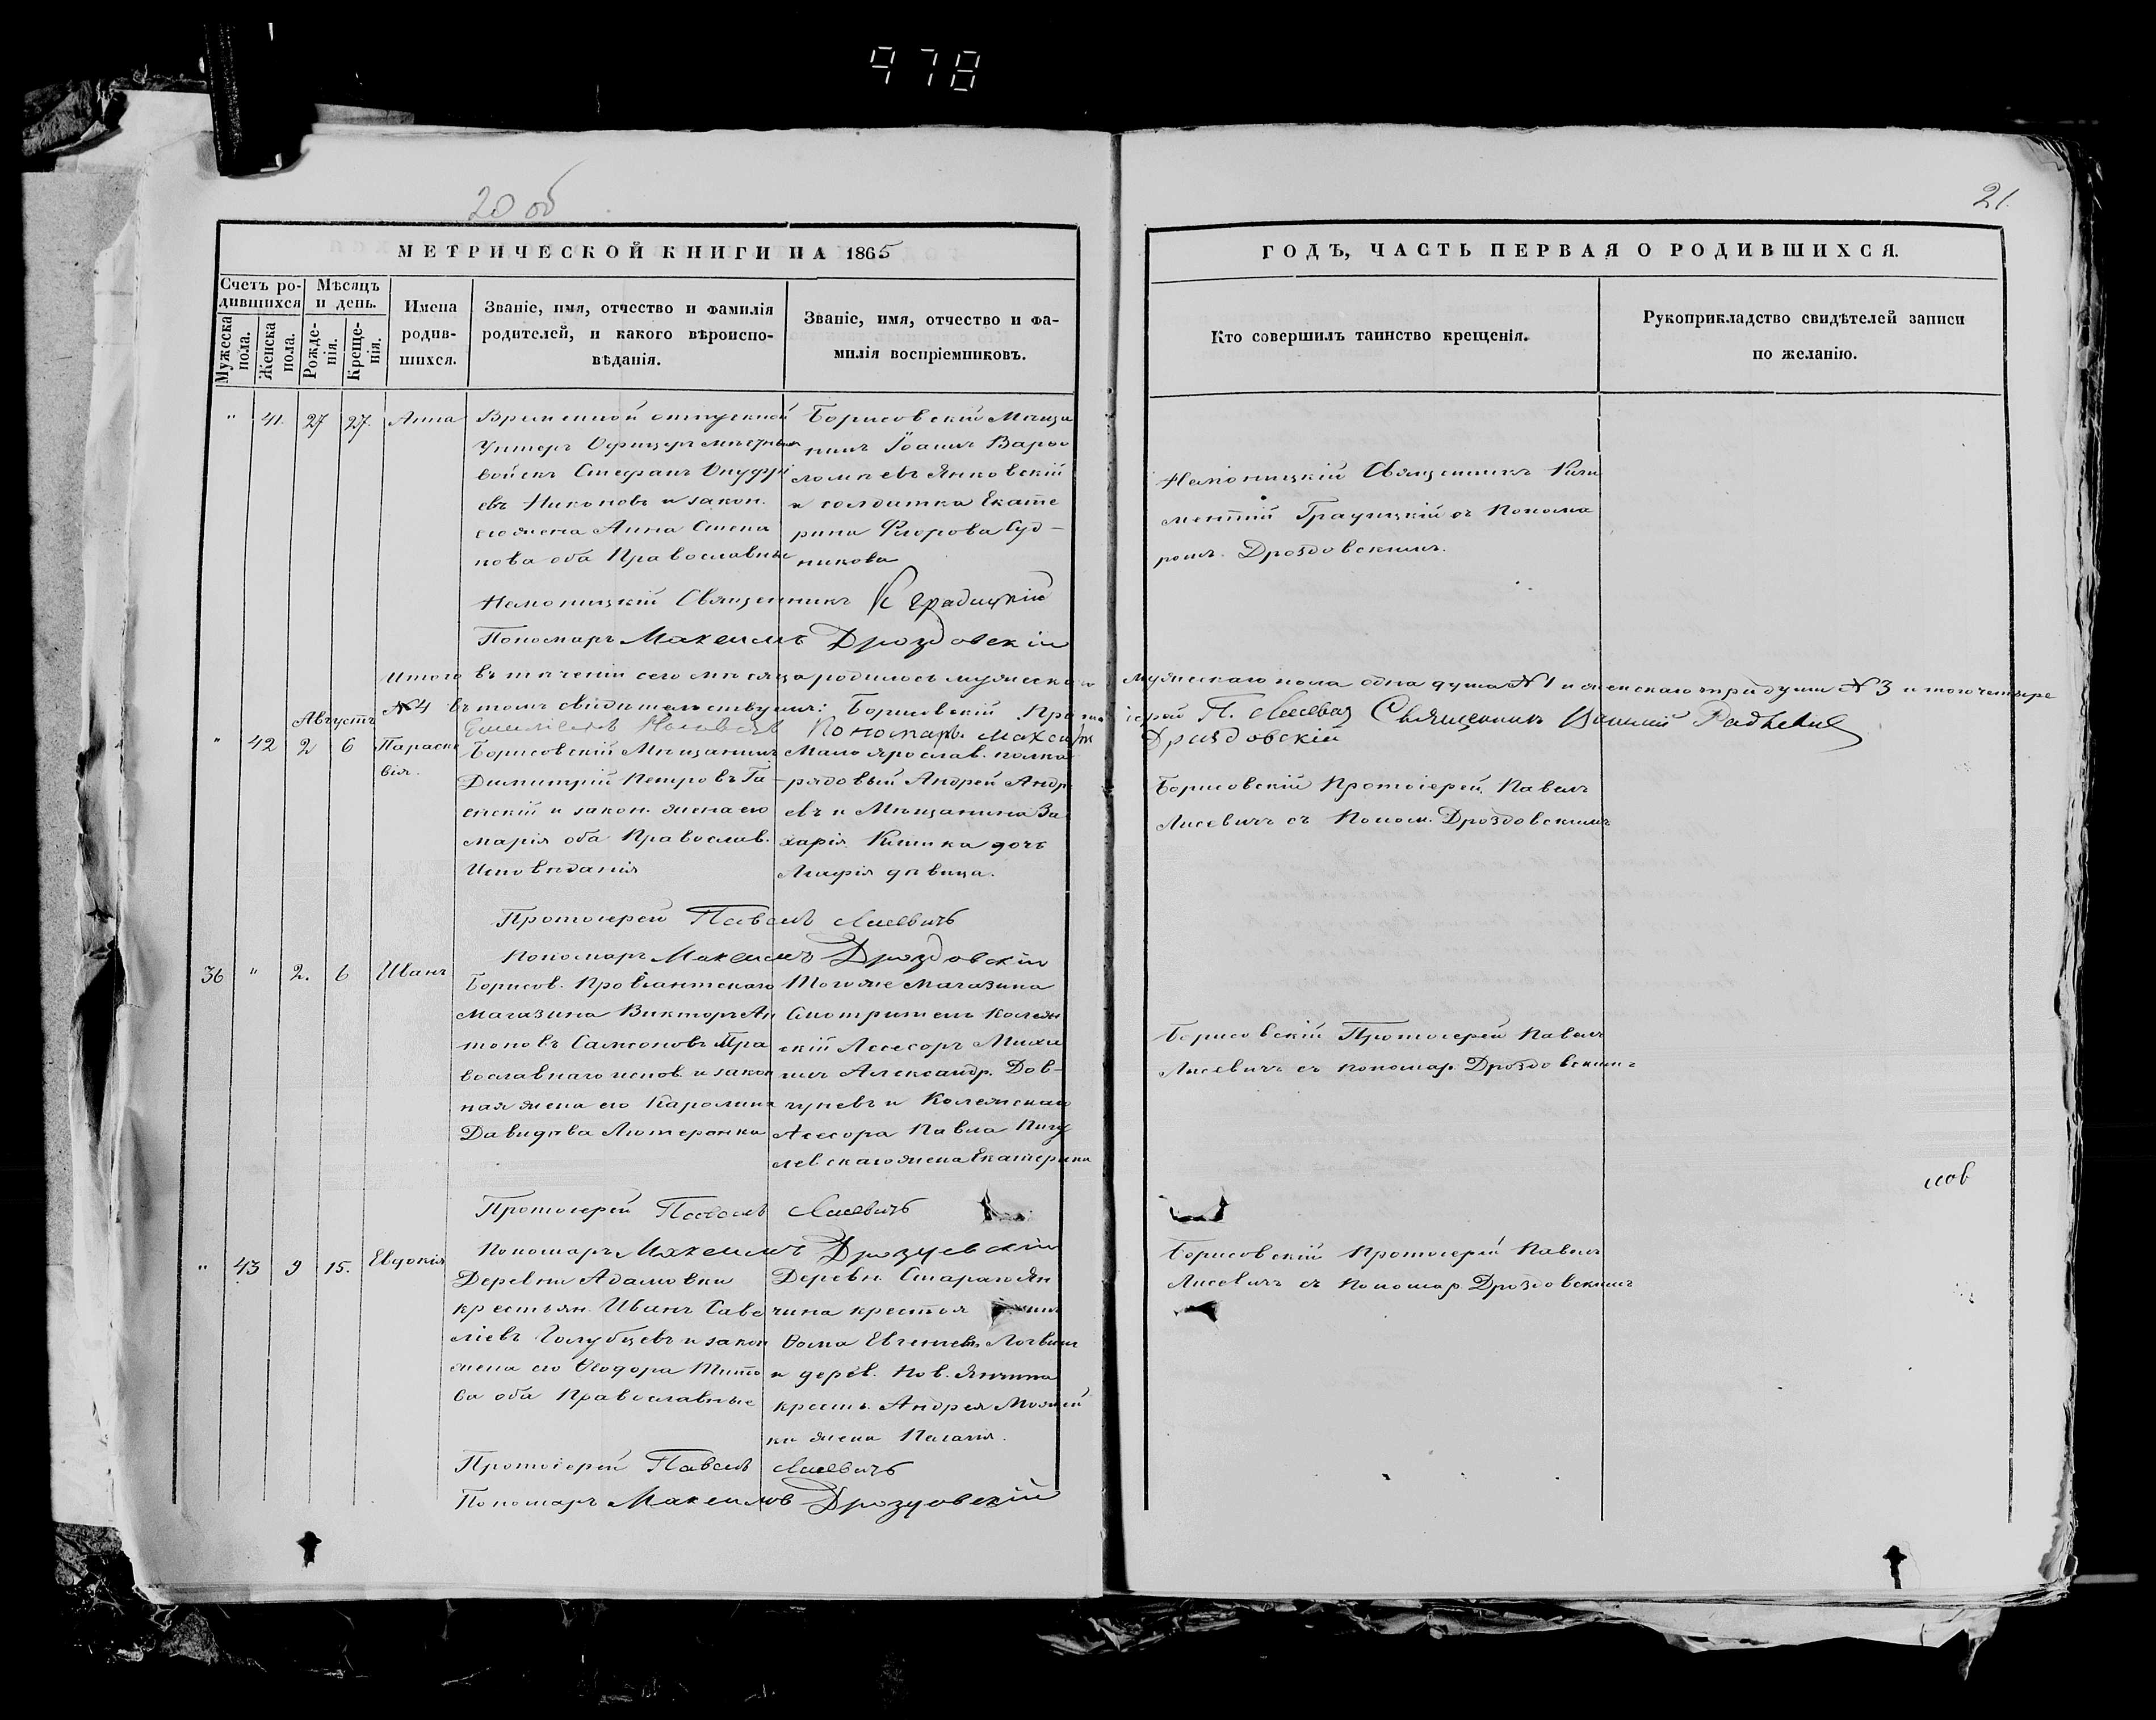 978
20 об
21
МЕТРИЧЕСКОЙ КНИГИ НА 1865
ГОДЪ, ЧАСТЬ ПЕРВАЯ О РОДИВШИХСЯ.
Счетъ ро-
дившихся
Мужеска пола.
Женска пола.
Мѣсяцъ
и день.
Рожде-
нія.
Креще-
нія.
Имена
родив-
шихся.
Званіе, имя, отчество и фамилія
родителей, и какого вѣроиспо-
вѣданія.
Званіе, имя, отчество и фа-
милія воспріемниковъ.
Кто совершилъ таинство крещенія.
Рукоприкладство свидѣтелей записи
по желанію.
" 41. 27 27. Анна
Временной отпускной
Унтеръ Офицеръ мѣстныхъ
войскъ Стефанъ Онуфрі
евъ Никоновъ и закон.
его жена Анна Степа
нова оба Православные
Борисовскій Мѣща
нинъ Іоаннъ Варѳо
ломѣевъ Янковскій
и солдатка Екате
рина Федорова Суд-
никова
Немоницкій Священникъ Кли
ментій Градицкій съ Понома
ремъ Дроздовскимъ.
Немоницкій Священникъ К Градицкій
Пономарь Максимъ Дроздовскій
Итого въ теченіи сего мѣсяца родилось мужеска
мужескаго пола одна душа №1 и женскаго три души №3 итого четыре
№4 въ томъ свидѣтельствуемъ: Борисовскій Прото
іерей П. Лисевичъ Священникъ
Пономарь Максимъ
Дроздовскій
Августъ
" 42 2 6 Параске
вія.
Борисовскій Мѣщанинъ
Димитрій Петровъ Га-
енскій и закон. жена его
Марія оба Православ.
Исповѣданія
Малоярослав. полка
рядовый Андрей Андре
евъ и Мѣщанина За
харія Кишка дочь
дѣвица.
Борисовскій Протоіерей Павелъ
Лисевичъ съ Поном. Дроздовскимъ
Протоіерей Павелъ Лисевичъ
Пономарь Максимъ Дроздовскій
36 " 2. 6 Иванъ
Борисов. Провіантскаго
Магазина Викторъ Ан
тоновъ Самсоновъ Пра
вославнаго испов. и закон
ная жена его Каролина
Давидова Лютеранка
Того же Магазина
Смотритель Колеж
скій Асессоръ Михаи
лъ Александр. Дов-
и Колежскаго
Асесора Павла Пигу
левскаго жена Екатерина
Борисовскій Протоіерей Павелъ
Лисевичъ съ пономар. Дроздовскимъ
Протоіерей Павелъ Лисевичъ
Пономарь Максимъ Дроздовскій
" 43 9 15. Евдокія
Деревни Адамовки
крестьян. Иванъ Саве
ліевъ Голубцевъ и закон
жена его Ѳеодора Тито
ва оба Православные
Деревн. Стараго Ян
чина крестья
Ѳома Евгеніевъ Логвин
и дерев. Нов. Янчина
крестьь. Андрея
жена Пелагія.
Борисовскій Протоіерей Павелъ
Лисевичъ съ Пономар. Дроздовскимъ
Протоіерей Павелъ Лисевичъ
Пономарь Максимъ Дроздовскій